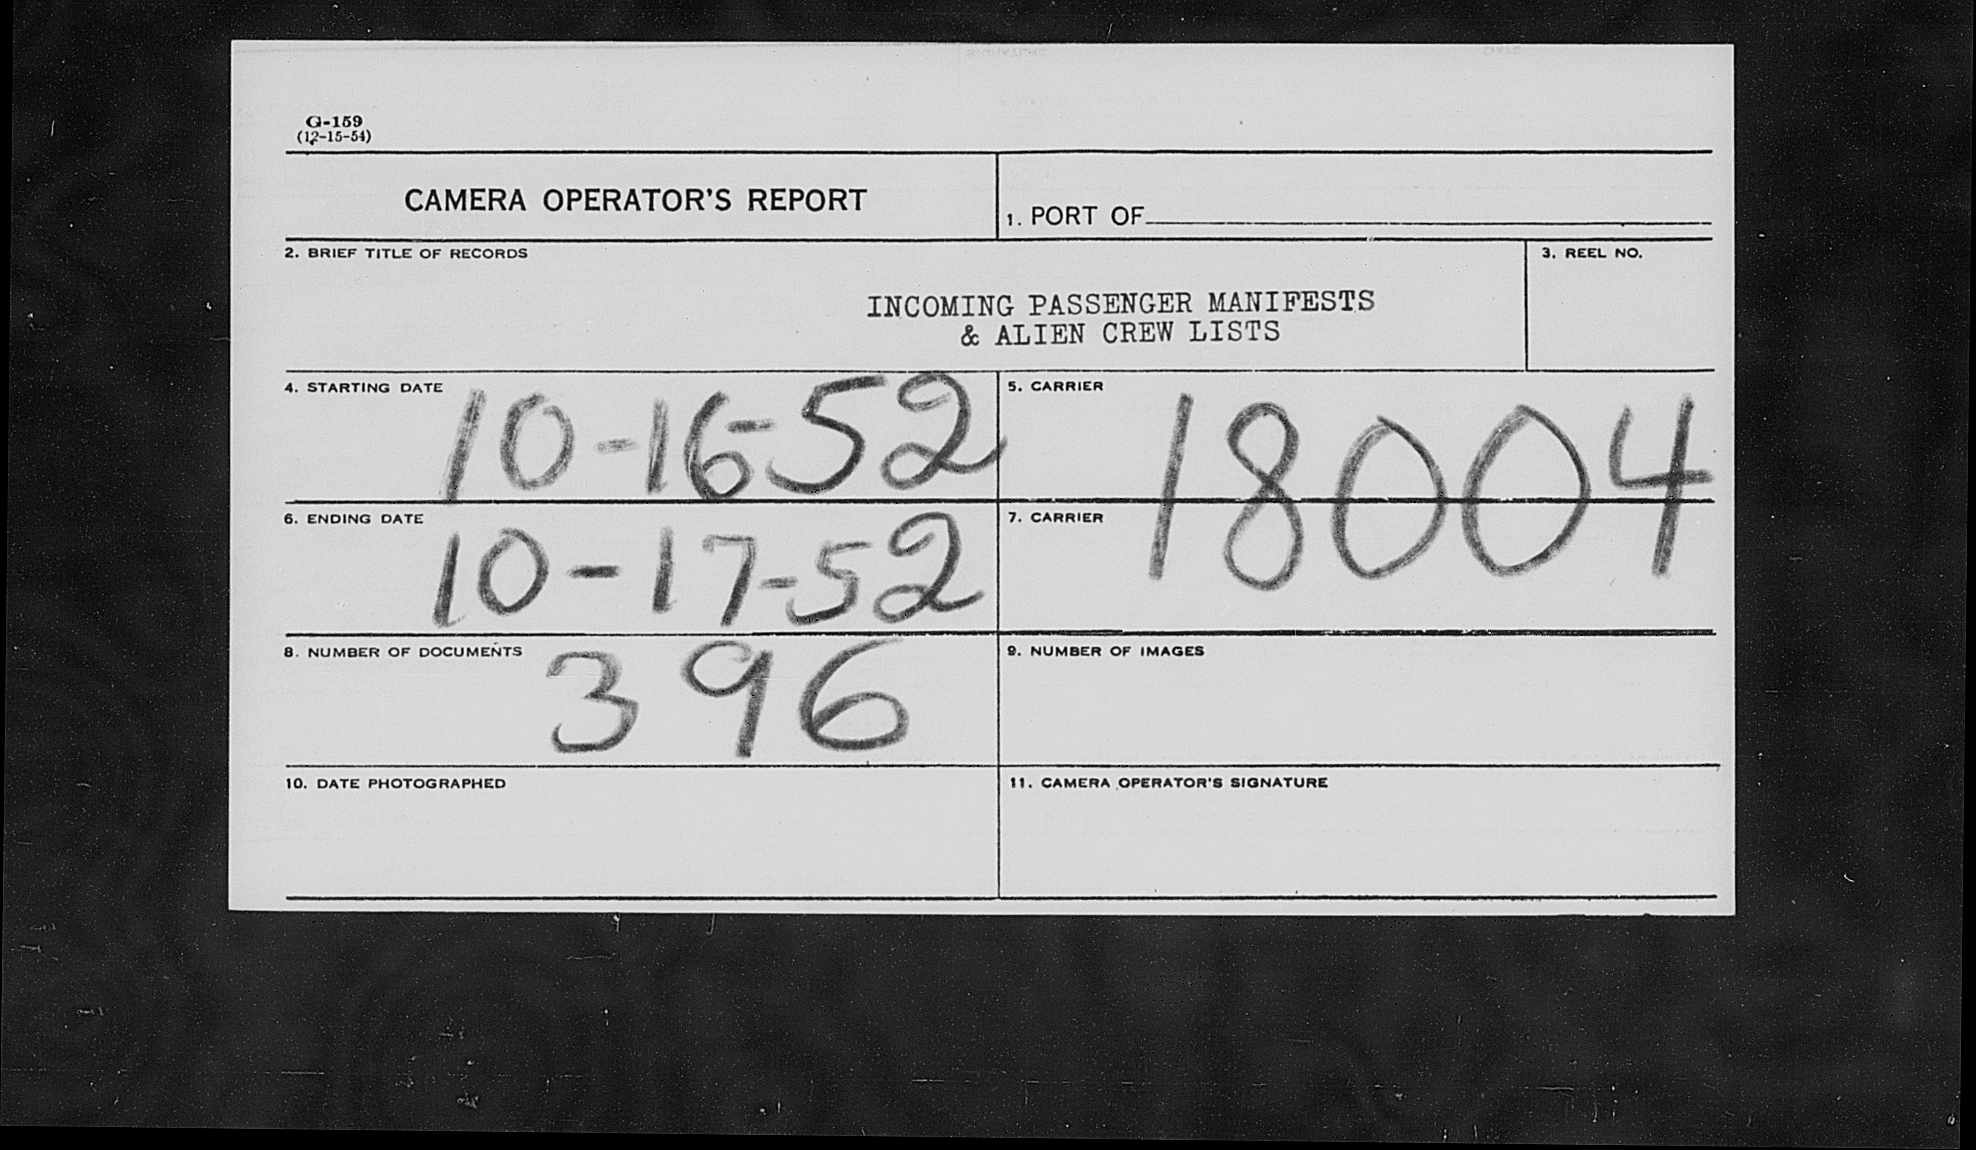 G-159
(12-15-54)
CAMERA OPERATOR'S REPORT
1. PORT OF
2. BRIEF TITLE OF RECORDS
INCOMING PASSENGER MANIFESTS
& ALIEN CREW LISTS
3. REEL NO.
4. STARTING DATE
10-16-52
5. CARRIER
18004
6. ENDING DATE
10-17-52
7. CARRIER
8. NUMBER OF DOCUMENTS
396
9. NUMBER OF IMAGES
10. DATE PHOTOGRAPHED
11. CAMERA OPERATOR'S SIGNATURE